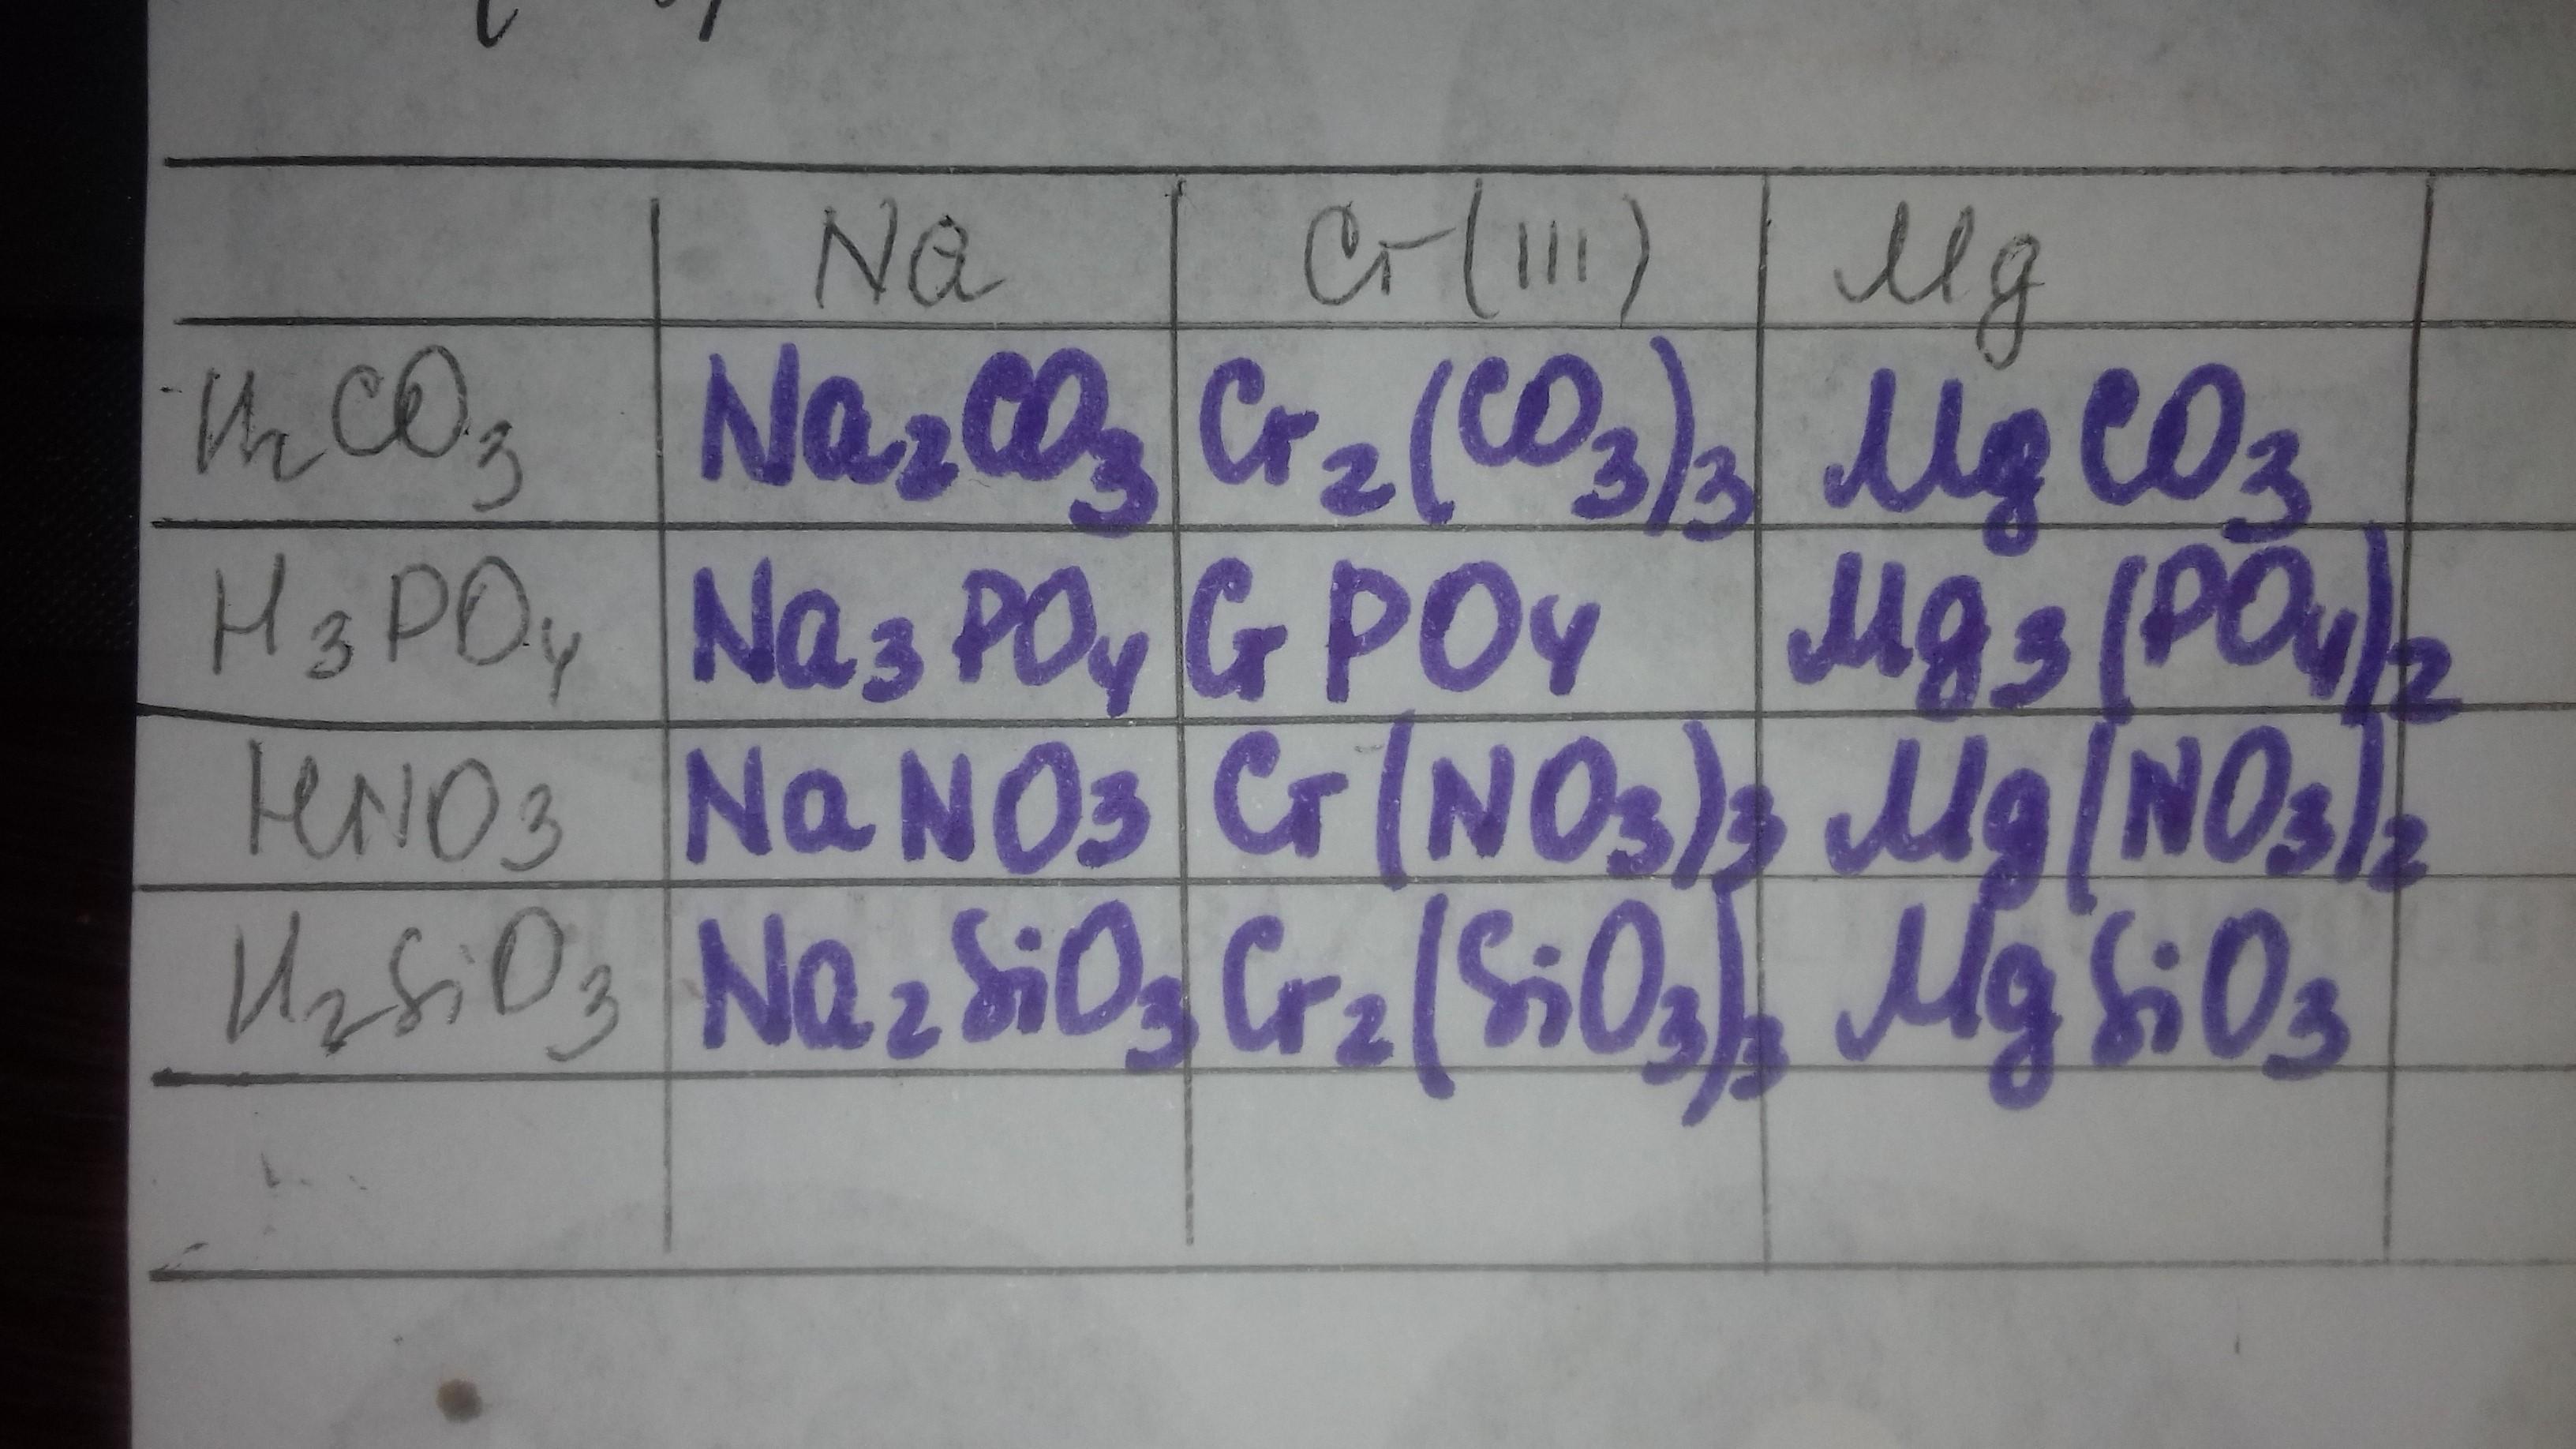 Na Cr(III) Mg
H₂CO₃ Na₂CO₃ Cr₂(CO₃)₃ MgCO₃
H₃PO₄ Na₃PO₄ CrPO₄ Mg₃(PO₄)₂
HNO₃ NaNO₃ Cr(NO₃)₃ Mg(NO₃)₂
H₂SiO₃ Na₂SiO₃ Cr₂(SiO₃)₃ MgSiO₃